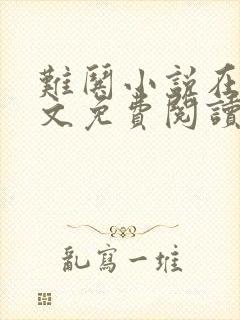 難關小說在
文免費閱讀
亂寫一堆